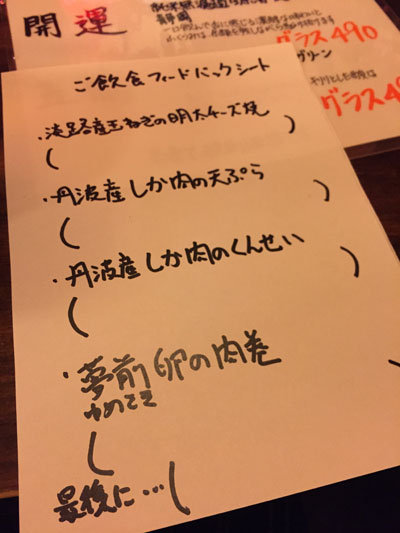 開運
静岡
グラス490
グリーン
グラス4
ご飲食フィードバックシート
・淡路産玉ねぎの明太チーズ焼
(　)
・丹波産しか肉の天ぷら
(　)
・丹波産しか肉のくんせい
(　)
・夢前卵の肉巻
ゆめさき
(　)
最後に…(